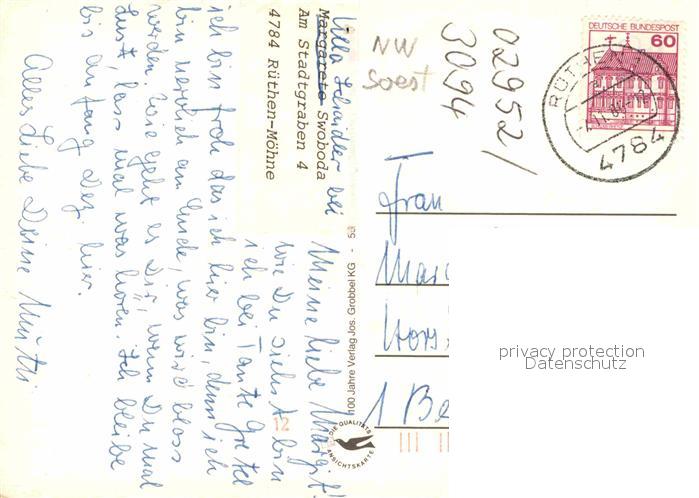 Villa Schindler bei
Margarete Swoboda
Am Stadtgraben 4
4784 Rüthen-Möhne
Meine liebe Margit!
Wie Du siehst bin
ich bei Tante Gretel
ich bin froh das ich hier bin, denn ich
bin nervlich am Ende, was wird bloss
werden. Wie geht es Dir, wenn Du mal
Lust, lass mal was hören. Ich bleibe
bis Anfang Dez. hier.
Alles Liebe Deine Mutti
NW
Soest
02952/
3094
DEUTSCHE BUNDESPOST
60
RÜTHEN
4784
Frau
1 Be
100 Jahre Verlag Jos. Grobbel KG
DIE QUALITÄTS
ANSICHTSKARTE
12
privacy protection
Datenschutz